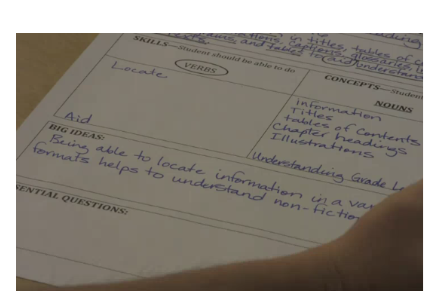 in titles, tables of
and captions, glossaries
tables to aid understand
SKILLS—Student should be able to do
VERBS
CONCEPTS—Student
NOUNS
Locate
Aid
Information
Titles
tables of Contents
Chapter headings
Illustrations
Understanding Grade
BIG IDEAS:
Being able to locate information in a
formats helps to understand non-fiction
ESSENTIAL QUESTIONS: